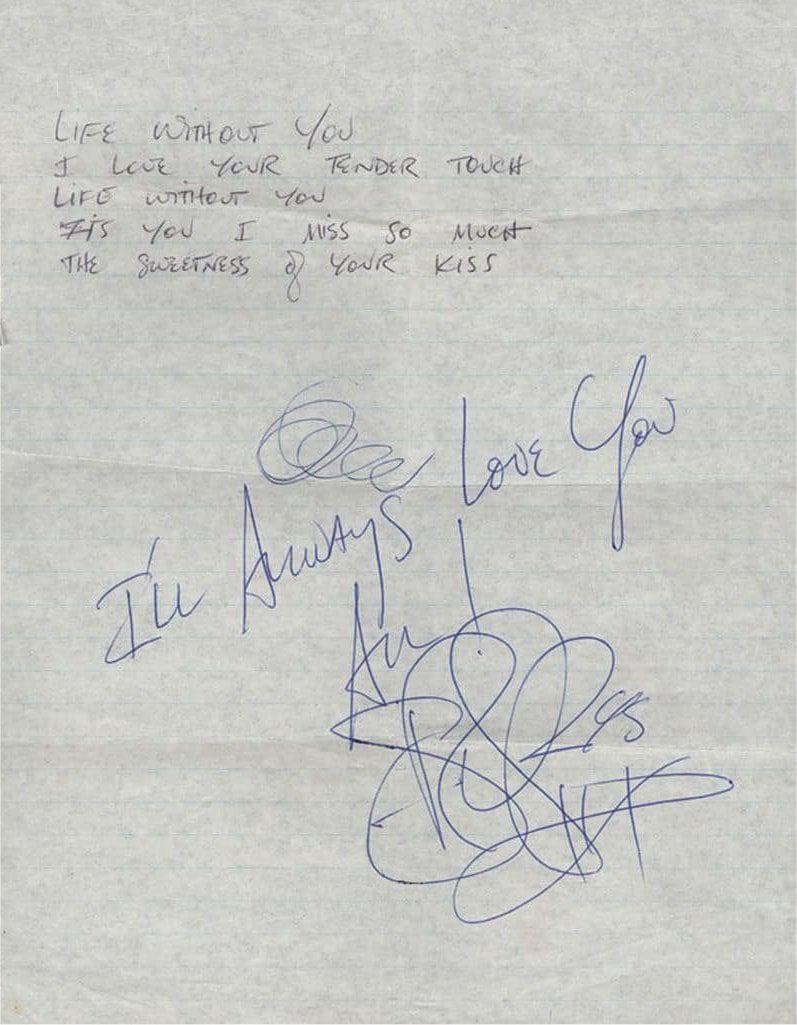 LIFE WITHOUT YOU
I LOVE YOUR TENDER TOUCH
LIFE WITHOUT YOU
ITS YOU I MISS SO MUCH
THE SWEETNESS of YOUR KISS
LOVE You
I'll Always